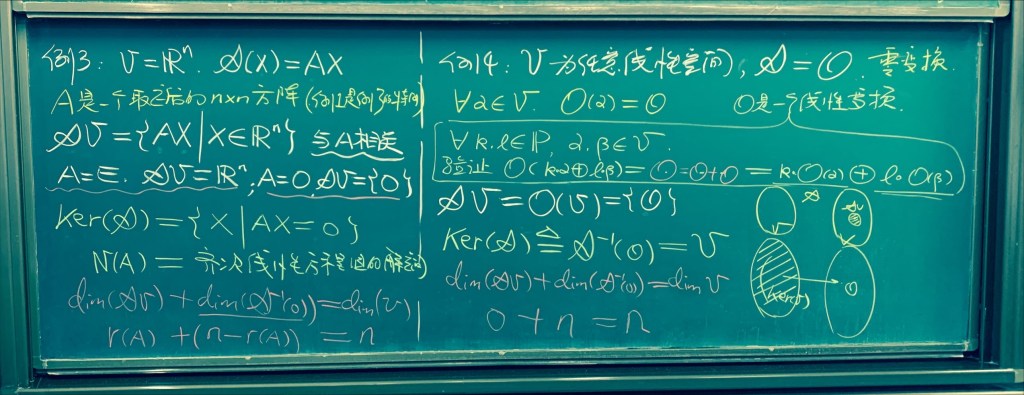 例3: V=ℝⁿ. 𝒜(X)=AX
A是一个取定后的n×n方阵(例1是例3的特例)
𝒜V={AX|X∈ℝⁿ} 与A相关
A=E. 𝒜V=ℝⁿ; A=0 𝒜V={0}
Ker(𝒜)={X|AX=0}
N(A)=齐次线性方程组的解空间
dim(𝒜V)+dim(𝒜⁻¹(0))=dim(V)
r(A)+(n-r(A))=n
例4: V为任意(线性空间), 𝒜=O. 零变换.
∀α∈V. O(α)=0 O是一个线性变换.
∀k.l∈ℙ, α.β∈V.
验证 O(k·α⊕l·β)=0=0+0=k·O(α)⊕l·O(β)
𝒜V=O(V)={0}
Ker(𝒜)≜𝒜⁻¹(0)=V
dim(𝒜V)+dim(𝒜⁻¹(0))=dim V
0+n=n
𝒜
V
𝒜V
V
Ker(𝒜)
0